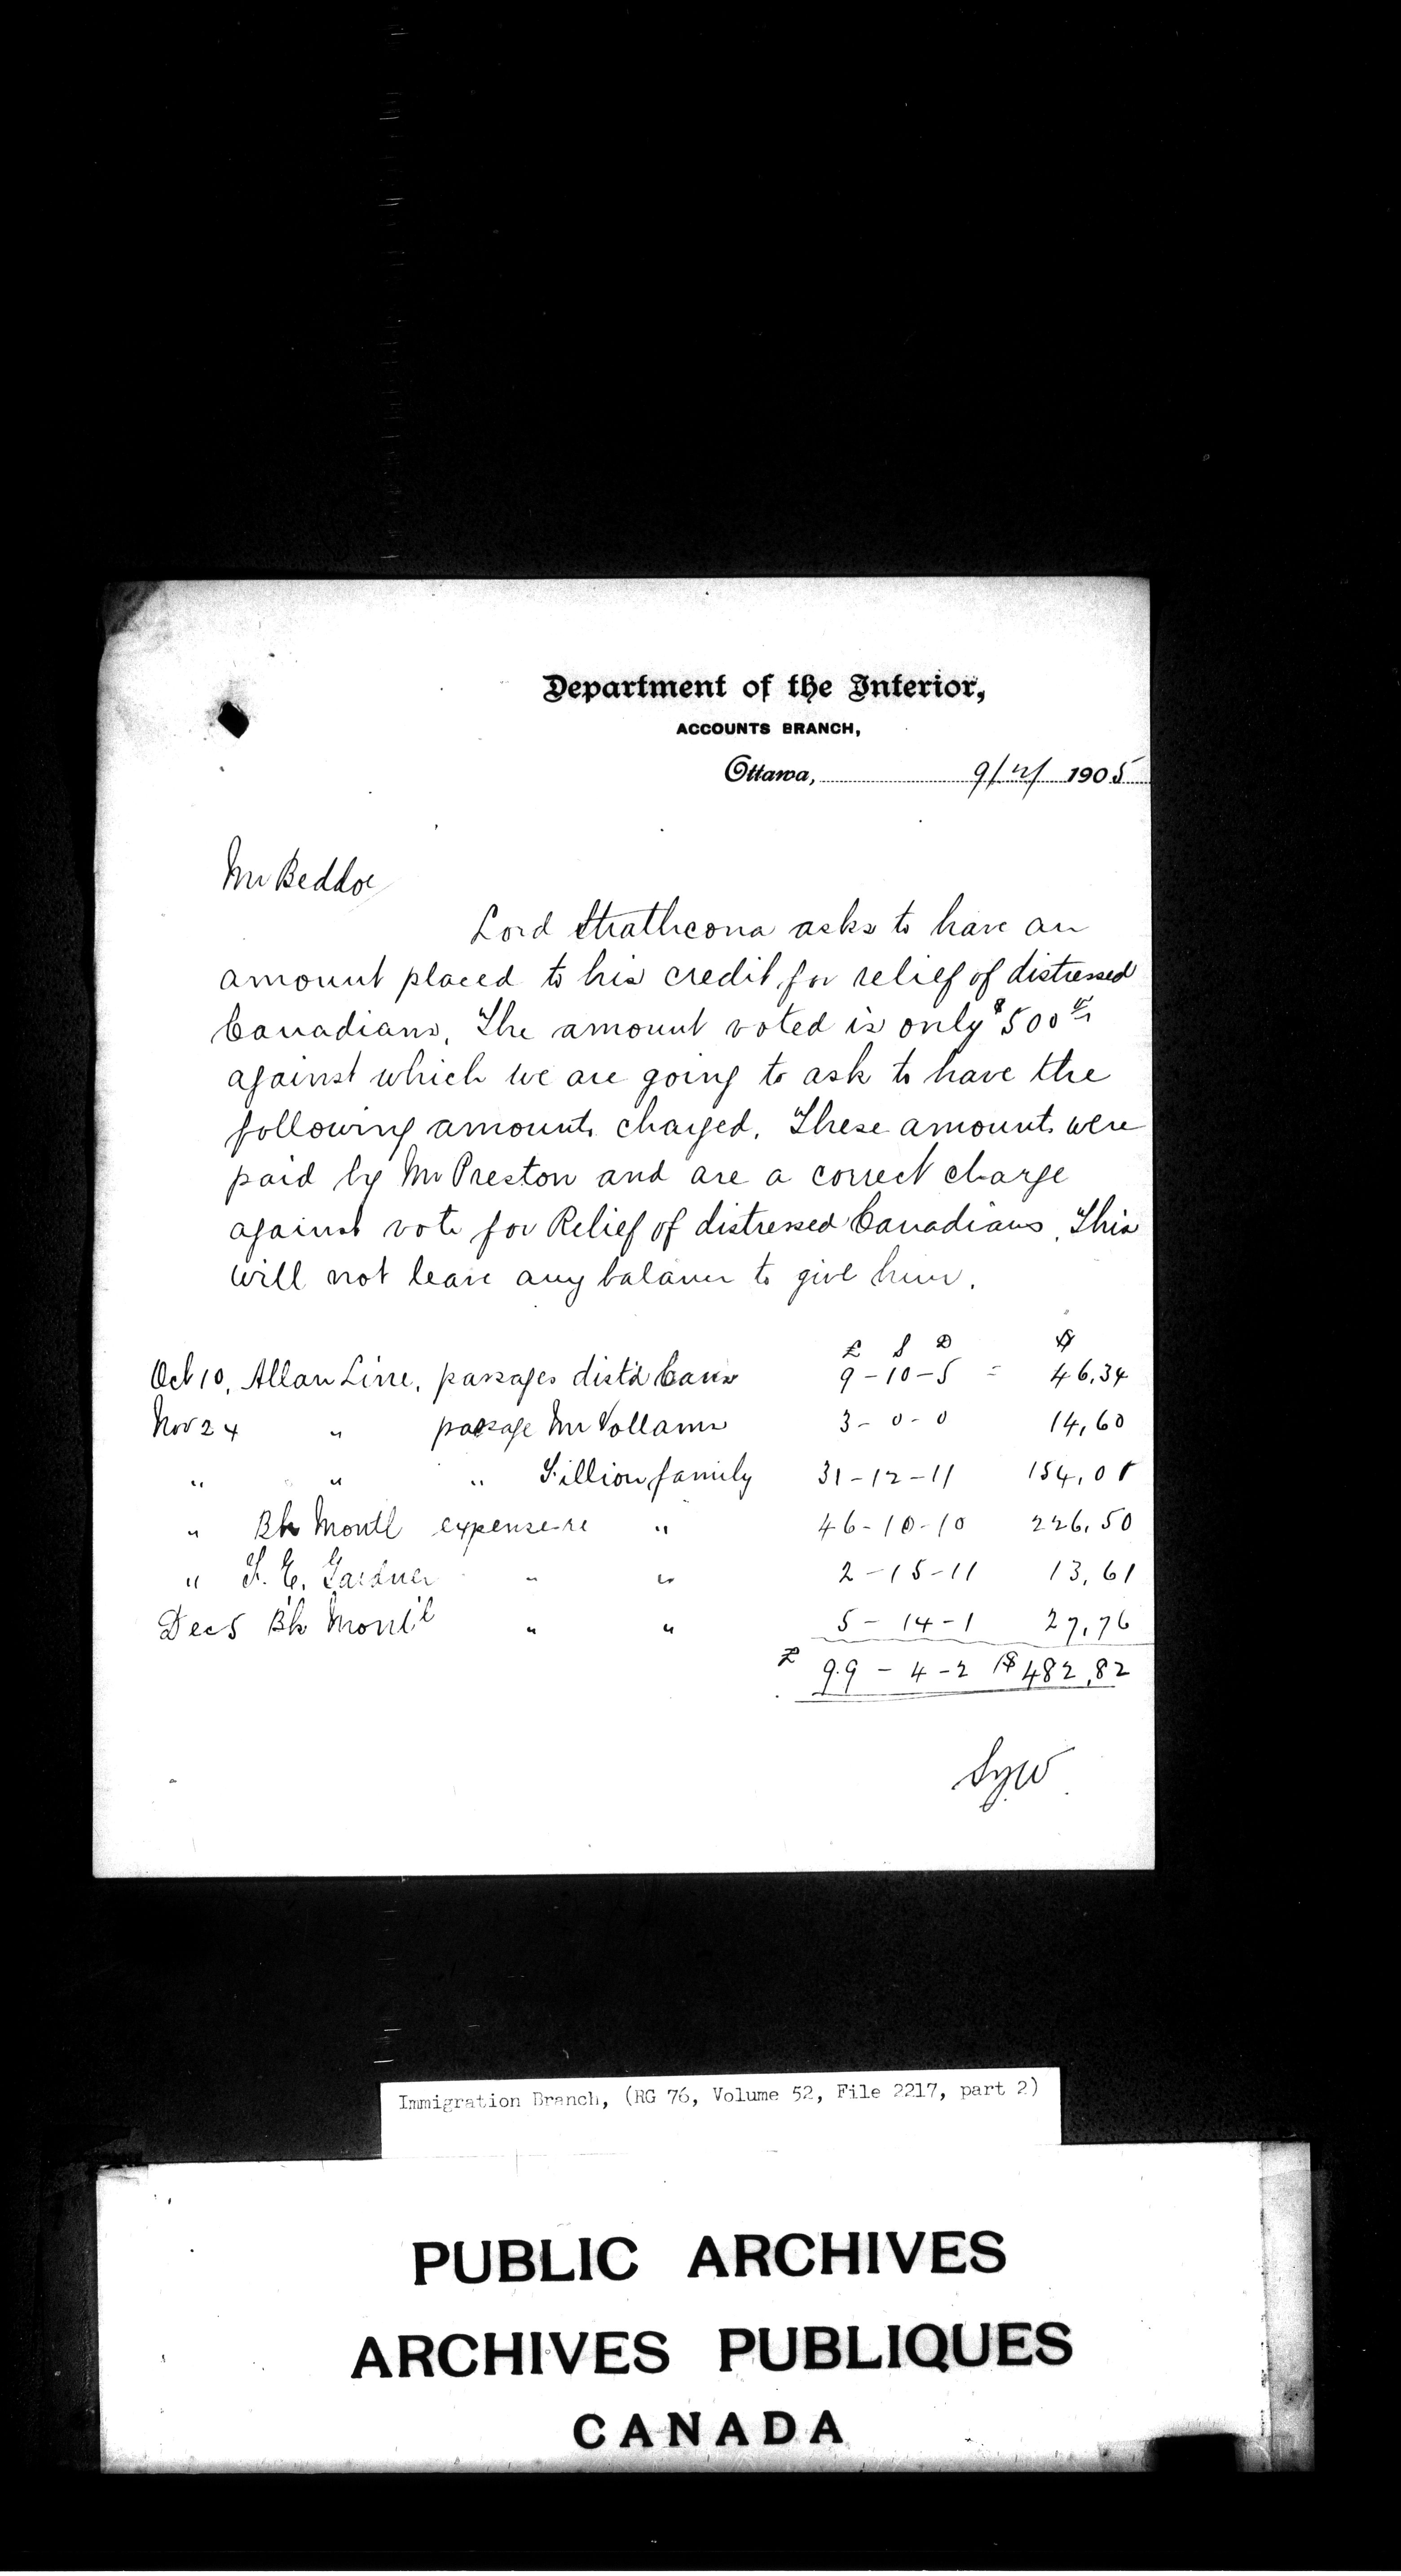 Department of the Interior,
ACCOUNTS BRANCH,
Ottawa, 9/2/ 1905
Mr Beddoe
Lord Strathcona asks to have an
amount placed to his credit for relief of distressed
Canadians. The amount voted is only $500
against which we are going to ask to have the
following amounts charged. These amounts were
paid by Mr Preston and are a correct charge
against vote for Relief of distressed Canadians. This
will not leave any balance to give him.
£ S D $
Oct 10, Allan Line, passages dist'd Cans 9-10-5 = 46,34
Nov 24 " passage Mr Vollams 3-0-0 14,60
" " " Fillion family 31-12-11 154,01
" Bk Montl expense re " 46-10-10 226,50
" F. E. Gardner " " 2-15-11 13,61
Dec 5 Bk Mont'l " " 5-14-1 27,76
£ 99-4-2 $482,82
Immigration Branch, (RG 76, Volume 52, File 2217, part 2)
PUBLIC ARCHIVES
ARCHIVES PUBLIQUES
CANADA